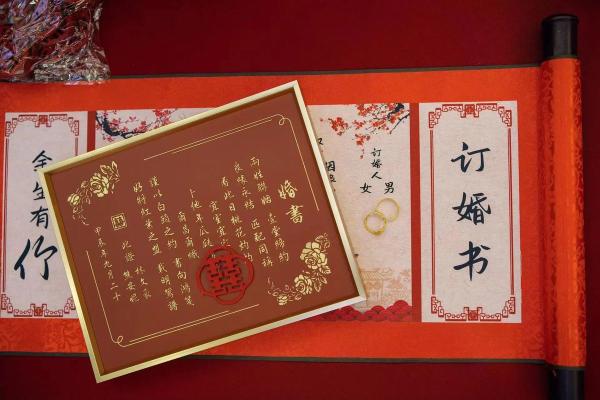 订婚书
订婚人
男
女
余生有
你
婚書
兩姓聯姻 壹堂締約
良緣永結 匹配同稱
看此日桃花灼灼
宜室宜
卜他年瓜瓞
爾昌爾熾
謹以白頭之約 書向鴻箋
好將紅葉之盟 載明鴛譜
此證
甲辰年九月二十
囍